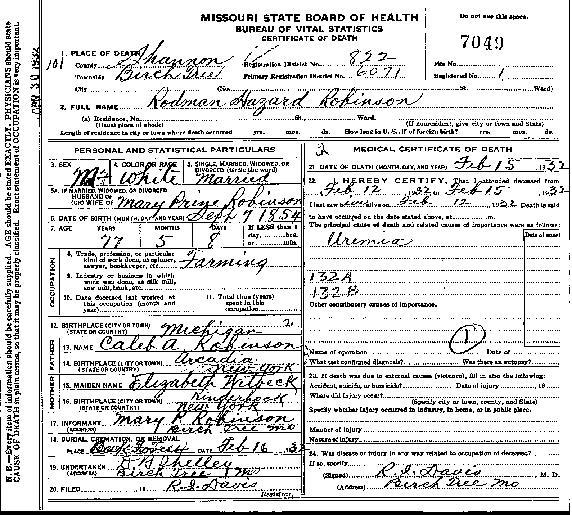 MISSOURI STATE BOARD OF HEALTH
BUREAU OF VITAL STATISTICS
CERTIFICATE OF DEATH
Do not use this space.
7049
1. PLACE OF DEATH
County Shannon Registration District No. 822 File No.
Township Birch Tree Primary Registration District No. 6071 Registered No. 1
City No. St. Ward)
2. FULL NAME Rodman Hazard Robinson
(a) Residence, No. St. Ward.
(Usual place of abode) (If nonresident, give city or town and State)
Length of residence in city or town where death occurred yrs. mos. ds. How long in U. S., if of foreign birth? yrs. mos. ds.
PERSONAL AND STATISTICAL PARTICULARS
3. SEX 4. COLOR OR RACE White 5. SINGLE, MARRIED, WIDOWED, OR DIVORCED (write the word) Married
5A. IF MARRIED, WIDOWED, OR DIVORCED
HUSBAND OF
(OR) WIFE OF Mary Robinson
6. DATE OF BIRTH (MONTH, DAY AND YEAR) Sept 7 1854
7. AGE YEARS 77 MONTHS 5 DAYS 8 If LESS than 1 day, hrs. or min.
OCCUPATION
8. Trade, profession, or particular kind of work done, as spinner, sawyer, bookkeeper, etc. Farming
9. Industry or business in which work was done, as silk mill, saw mill, bank, etc.
10. Date deceased last worked at this occupation (month and year)
11. Total time (years) spent in this occupation
12. BIRTHPLACE (CITY OR TOWN) Michigan
(STATE OR COUNTRY)
FATHER
13. NAME Caleb A Robinson
14. BIRTHPLACE (CITY OR TOWN) Arcadia
(STATE OR COUNTRY) New York
MOTHER
15. MAIDEN NAME Elizabeth Wilbeck
16. BIRTHPLACE (CITY OR TOWN) Kinderhook
(STATE OR COUNTRY) New York
17. INFORMANT Mary P Robinson
(ADDRESS) Birch Tree Mo
18. BURIAL, CREMATION, OR REMOVAL
PLACE Oak Forest DATE Feb 16 32
19. UNDERTAKER Shelley
(ADDRESS) Birch Tree Mo
20. FILED 19 R. I. Davis
Registrar.
MEDICAL CERTIFICATE OF DEATH
21. DATE OF DEATH (MONTH, DAY, AND YEAR) Feb 15 1932
22. I HEREBY CERTIFY, That I attended deceased from
Feb 12 1932 to Feb 15 32
I last saw alive on Feb 1932 Death is said
to have occurred on the date stated above, at m.
The principal cause of death and related causes of importance were as follows:
Date of onset
Uremia
132A
132B
Other contributory causes of importance:
Name of operation Date of
What test confirmed diagnosis? Was there an autopsy?
23. If death was due to external causes (violence), fill in also the following:
Accident, suicide, or homicide? Date of injury 19
Where did injury occur?
(Specify city or town, county, and State)
Specify whether injury occurred in industry, in home, or in public place.
Manner of injury
Nature of injury
24. Was disease or injury in any way related to occupation of deceased?
If so, specify
(Signed) R. I. Davis M. D.
(Address) Birch Tree Mo
N. B.—Every item of information should be carefully supplied. AGE should be stated EXACTLY. PHYSICIANS should state
CAUSE OF DEATH in plain terms, so that it may be properly classified. Exact statement of OCCUPATION is very important.